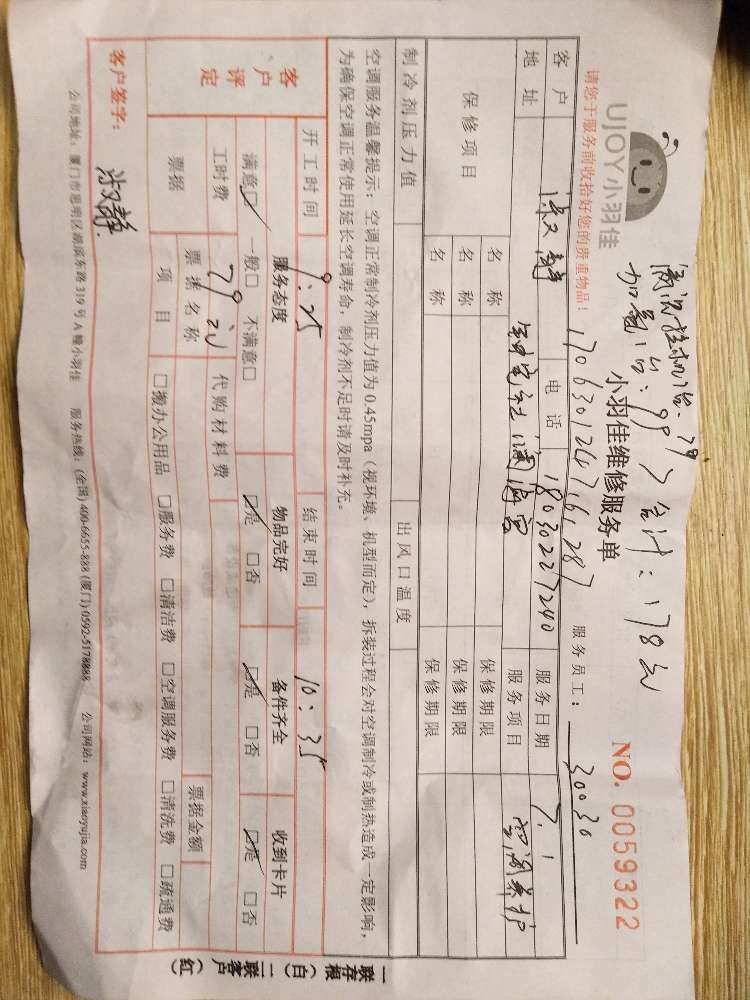 UJOY小羽佳
合计:178元
小羽佳维修服务单
NO. 0059322
请您于服务前收拾好您的贵重物品!
服务员工: 30030
客户
电话 18030227240
服务日期 7.1
地址
服务项目 空调养护
保修项目
名称 保修期限
名称 保修期限
名称 保修期限
制冷剂压力值 出风口温度
空调服务温馨提示:空调正常制冷剂压力值为0.45mpa(视环境、机型而定),拆装过程会对空调制冷或制热造成一定影响,
为确保空调正常使用延长空调寿命,制冷剂不足时请及时补充。
开工时间 9:25 结束时间 10:35
客户评定
服务态度 物品完好 备件齐全 收到卡片
满意☑ 一般□ 不满意□ ☑是 □否 ☑是 □否 ☑是 □否
工时费 79元 代购材料费
票据
票据名称 票据金额
项目 □搬办公用品 □服务费 □清洁费 □空调服务费 □清洗费 □疏通费
客户签字:
公司地址:厦门市思明区湖滨东路319号A幢小羽佳 服务热线:(全国)400-6655-888(厦门)0592-5178888 公司网站:www.xiaoyujia.com
一联存根(白)二联客户(红)